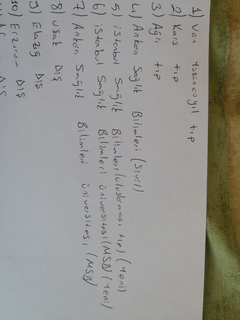 1) Van Yüzüncüyıl tıp
2) Kars tıp
3) Ağrı tıp
4) Ankara Sağlık Bilimleri (Sivil)
5 istanbul Sağlık Bilimleri (uluslararası tıp) (Yeni)
6) istanbul Sağlık Bilimleri üniversitesi (MSB) (Yeni)
7) Ankara Sağlık Bilimleri üniversitesi (MSB)
8) uşak Diş
9) Elazığ Diş
10 Erzurum Diş
Diş